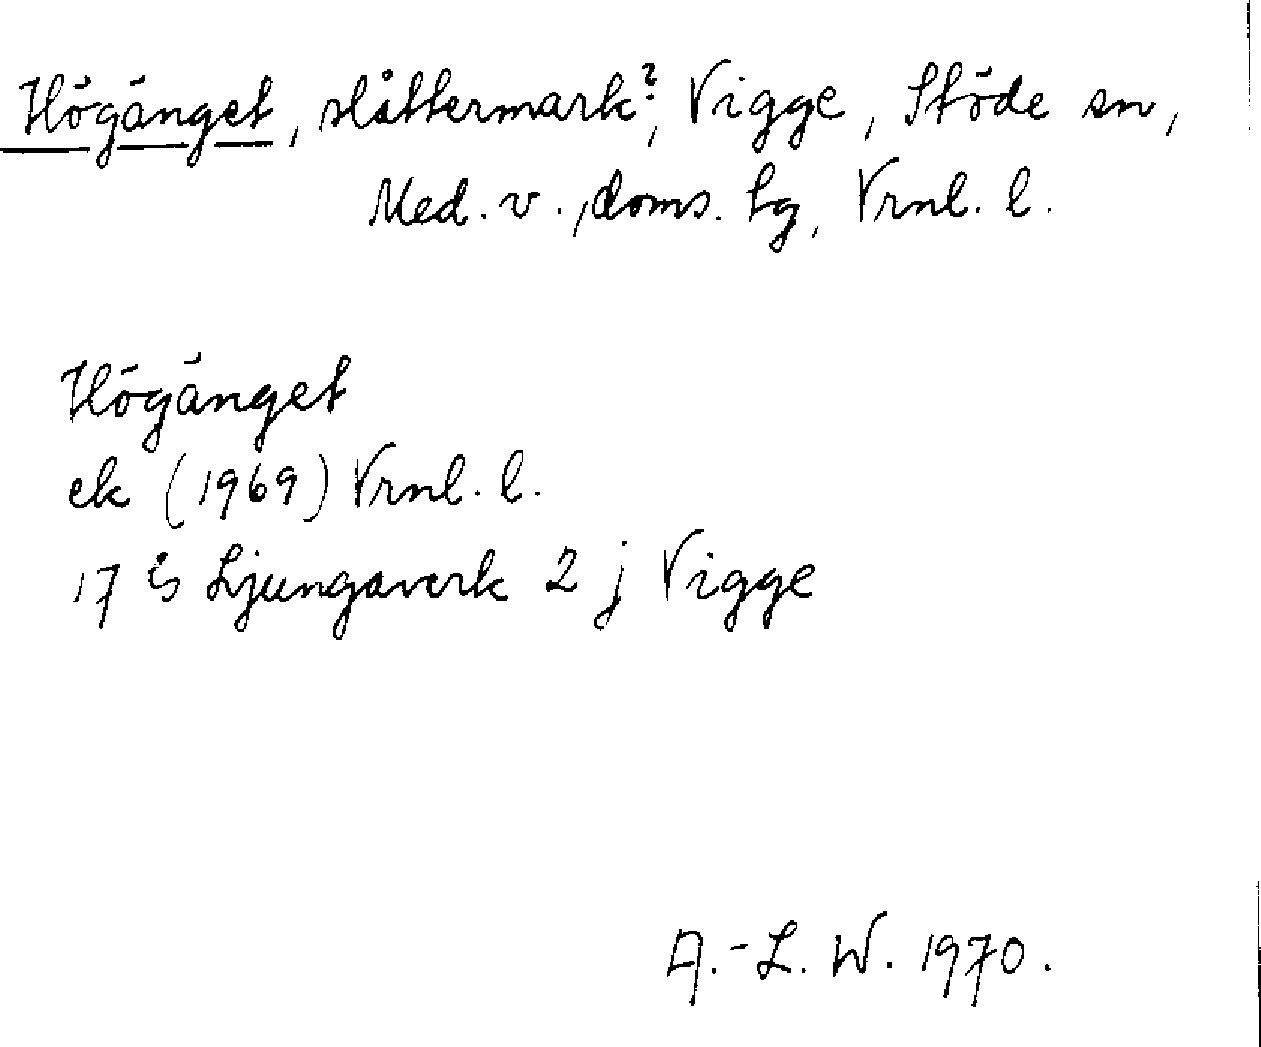 Högänget, slåttermark?, Vigge, Stöde sn,
Med. v., doms. hg, Vrnl. l.
Högänget
ek (1969) Vrnl. l.
17 G Ljungaverk 2 j Vigge
A.-L. W. 1970.